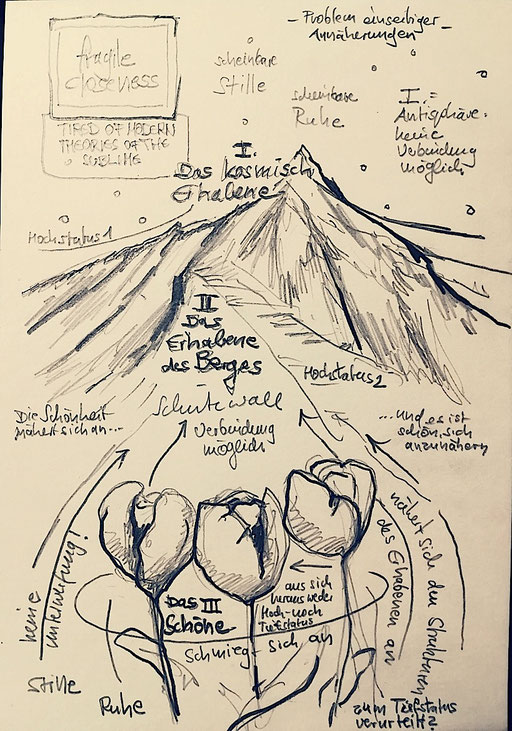 fragile
closeness
TIRED OF MODERN
THEORIES OF THE
SUBLIME
- Problem einseitiger
Annäherungen -
scheinbare
Stille
scheinbare
Ruhe
I. =
Antisphäre.
keine
Verbindung
möglich
I.
Das kosmisch
Erhabene
Hochstatus 1
II
Das
Erhabene
des Berges
Hochstatus 2
Schutzwall
Verbindung
möglich
Die Schönheit
nähert sich an...
...und es ist
schön, sich
anzunähern
keine
Unterwerfung!
nähert sich den Strukturen
des Erhabenen an
Das III
Schöne
aus sich
heraus weder
Hoch- noch
Tiefstatus
schmiegt sich an
Stille
Ruhe
zum Tiefstatus
verurteilt?